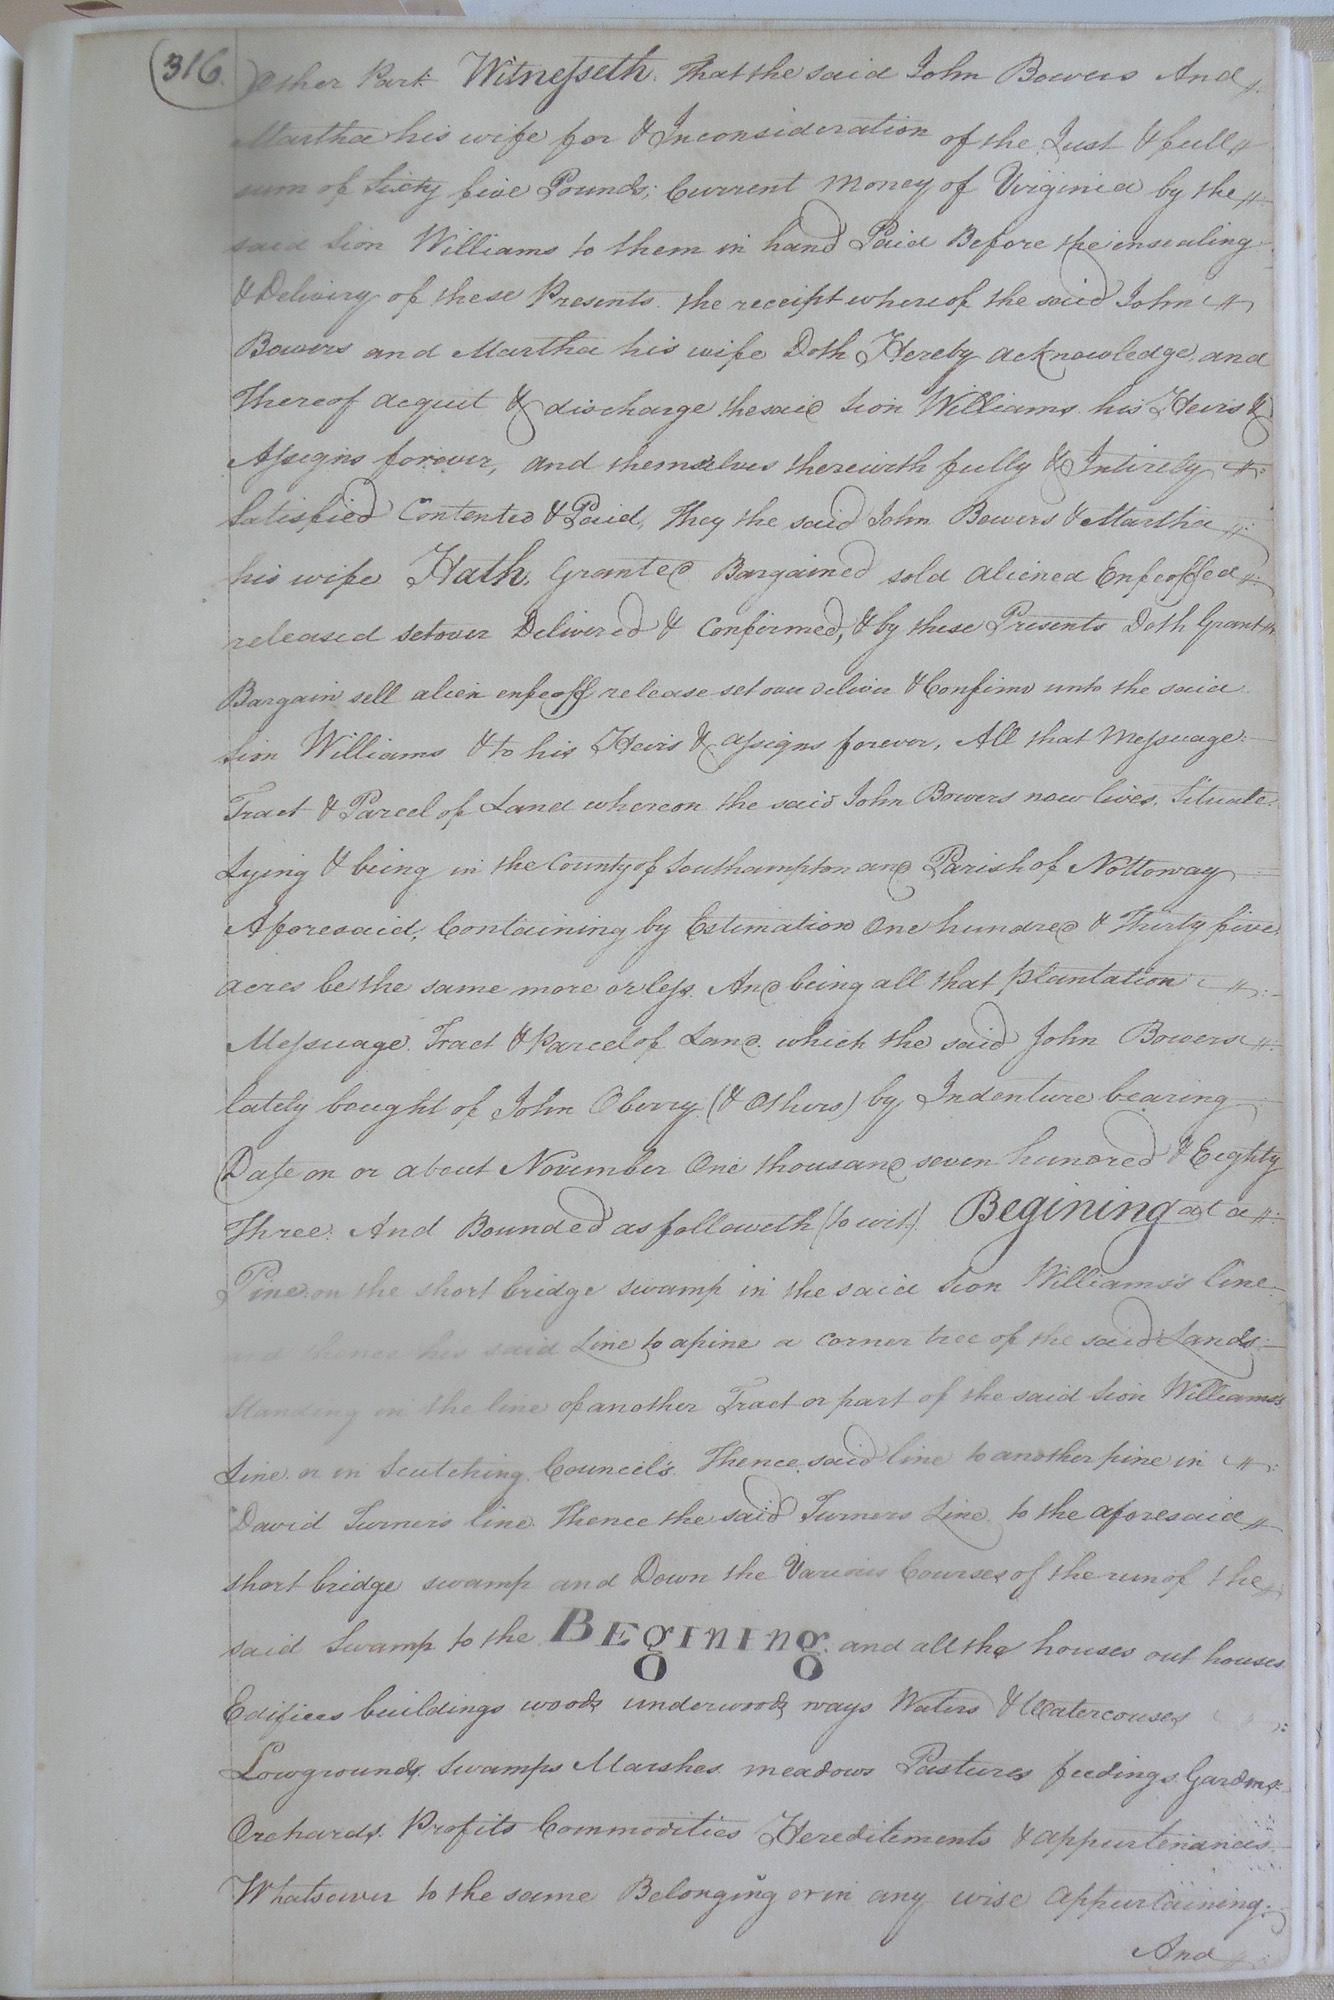 316.
Other Part Witnesseth. That the said John Bowers And
Martha his wife for & Inconsideration of the Just & full
sum of Sixty five Pounds; Current Money of Virginia by the
said Sion Williams to them in hand Paid Before the ensealing
& Delivery of these Presents. the receipt whereof the said John
Bowers and Martha his wife Doth Hereby acknowledge, and
Thereof acquit & discharge the said Sion Williams his Heirs &
Assigns forever, and themselves therewith fully & Intirely
Satisfied Contented & Paid, They the said John Bowers & Martha
his wife Hath Granted Bargained sold aliened Enfeoffed
released setover Delivered & Confirmed, & by these Presents Doth Grant
Bargain sell alien enfeoff release setover deliver & Confirm unto the said
Sion Williams & to his Heirs & assigns forever, All that Messuage
Tract & Parcel of Land whereon the said John Bowers now lives, Situate
Lying & being in the County of Southampton and Parish of Nottoway
Aforesaid, Containing by Estimation One hundred & Thirty five
acres be the same more or less. And being all that plantation
Messuage. Tract & Parcel of Land. which the said John Bowers
lately bought of John Oberry (& Others) by Indenture bearing
Date on or about November One thousand seven hundred & Eighty
Three: And Bounded as followeth (to wit). Begining at a
Pine on the short bridge swamp in the said Sion Williams's line
and thence his said Line to a pine a corner tree of the said Lands
Standing in the line of another Tract or part of the said Sion Williams's
Line or in Scutching Council's. Thence said line to another pine in
David Turner's line Thence the said Turners Line to the aforesaid
short bridge swamp and Down the Various Courses of the run of the
said Swamp to the BEgining. and all the houses out houses
Edifices buildings woods underwoods ways Waters & Watercouses
Lowgrounds Swamps Marshes meadows Pastures feedings Gardens
Orchards. Profits Commodities Hereditements & appurtenances
Whatsoever to the same Belonging or in any wise appurtaining.
And